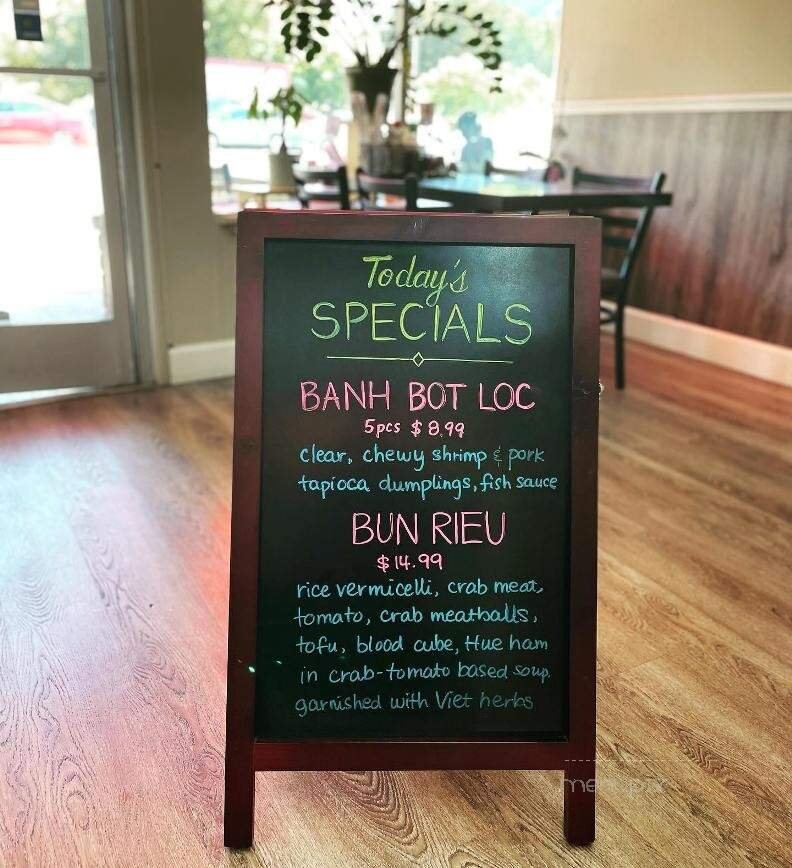 Today's
SPECIALS
BANH BOT LOC
5pcs $8.99
clear, chewy shrimp & pork
tapioca dumplings, fish sauce
BUN RIEU
$14.99
rice vermicelli, crab meat,
tomato, crab meatballs,
tofu, blood cube, Hue ham
in crab-tomato based soup
garnished with Viet herbs